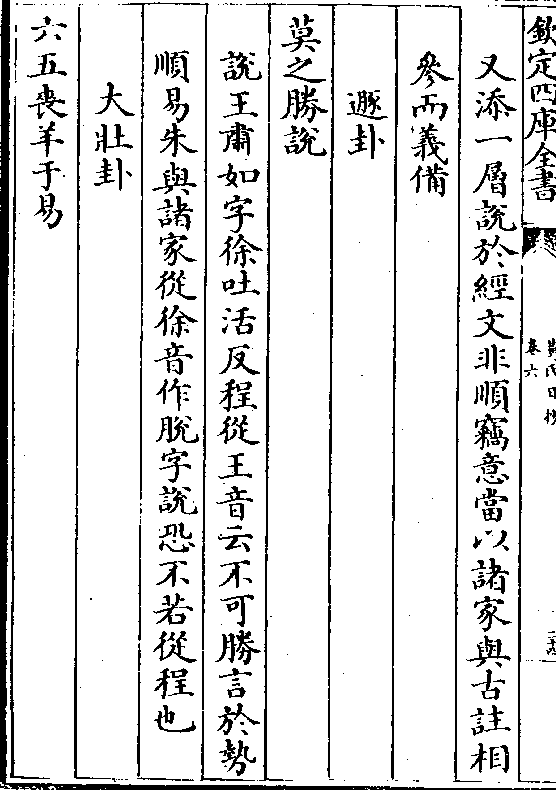 欽定四庫全書
黃氏日抄
卷六
又添一層說於經文非順竊意當以諸家與古註相
參而義備
遯卦
莫之勝說
說王肅如字徐吐活反程從王音云不可勝言於勢
順易朱與諸家從徐音作脫字說恐不若從程也
大壯卦
六五喪羊于易